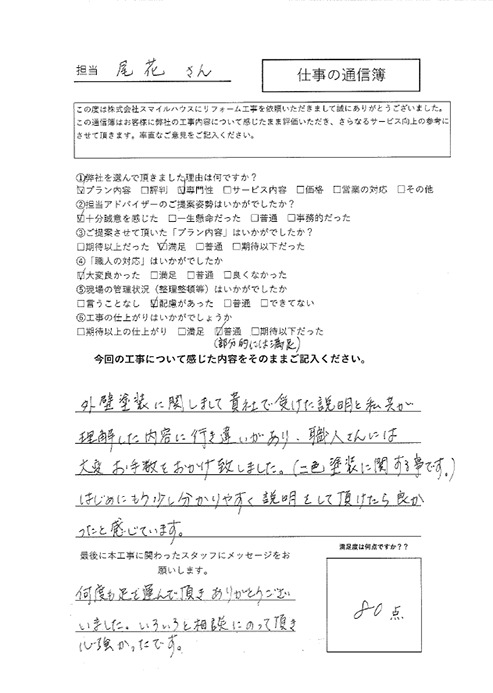 担当 尾花 さん
仕事の通信簿
この度は株式会社スマイルハウスにリフォーム工事を依頼いただきまして誠にありがとうございました。
この通信簿はお客様に弊社の工事内容について感じたまま評価いただき、さらなるサービス向上の参考に
させて頂きます。率直なご意見をご記入ください。
①弊社を選んで頂きました理由は何ですか?
☑プラン内容 □評判 ☑専門性 □サービス内容 □価格 □営業の対応 □その他
②担当アドバイザーのご提案姿勢はいかがでしたか?
☑十分誠意を感じた □一生懸命だった □普通 □事務的だった
③ご提案させて頂いた「プラン内容」はいかがでしたか?
□期待以上だった ☑満足 □普通 □期待以下だった
④「職人の対応」はいかがでしたか
☑大変良かった □満足 □普通 □良くなかった
⑤現場の管理状況(整理整頓等)はいかがでしたか
□言うことなし ☑配慮があった □普通 □できてない
⑥工事の仕上がりはいかがでしょうか
□期待以上の仕上がり □満足 ☑普通 □期待以下だった
(部分的には満足)
今回の工事について感じた内容をそのままご記入ください。
外壁塗装に関しまして貴社で受けた説明と私共が
理解した内容に行き違いがあり、職人さんには
大変お手数をおかけ致しました。(二色塗装に関する事です。)
はじめにもう少し分かりやすく説明をして頂けたら良か
ったと感じています。
最後に本工事に関わったスタッフにメッセージをお
願いします。
何度も足を運んで頂きありがとうござい
いました。いろいろと相談にのって頂き
心強かったです。
満足度は何点ですか??
80点